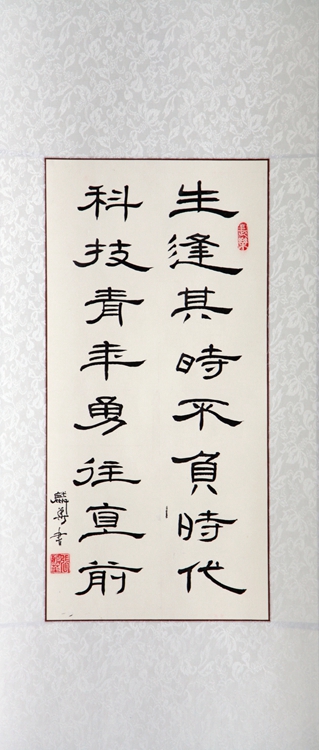 生逢其時不負時代
科技青年勇往直前